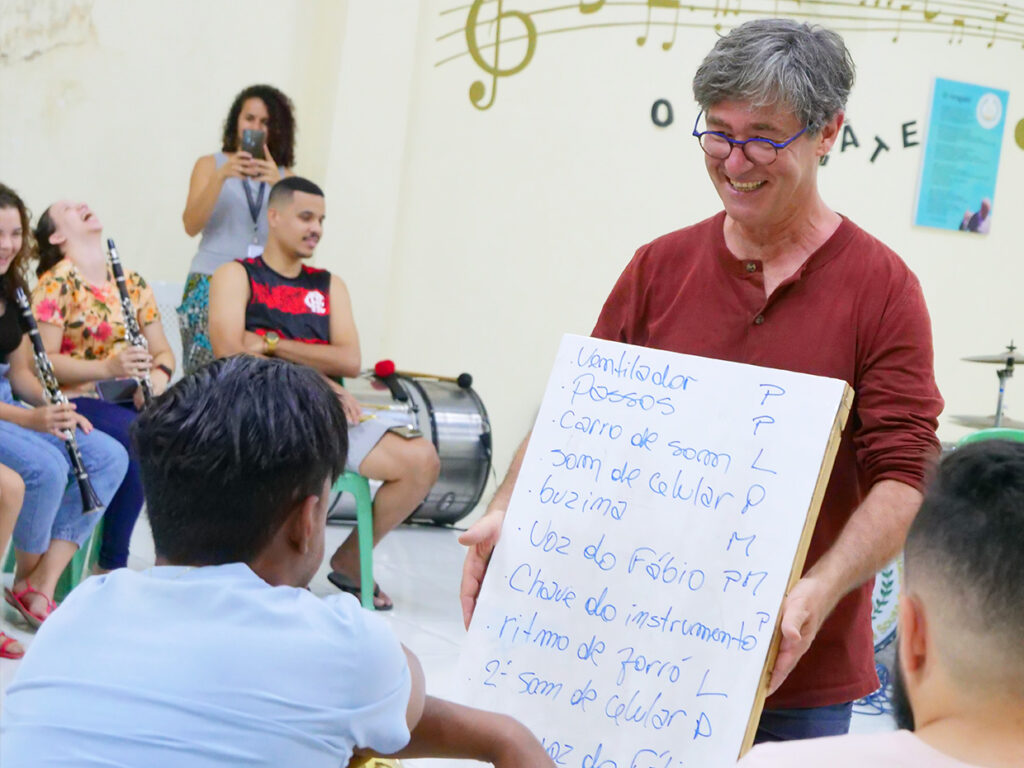 · Ventilador P
· Passos P
· Carro de som L
· som de celular P
· buzina M
· Voz do Fábio PM
· Chave do instrumento P
· ritmo de forró L
· 2º som de celular P
voz do Fábi
O
ATE